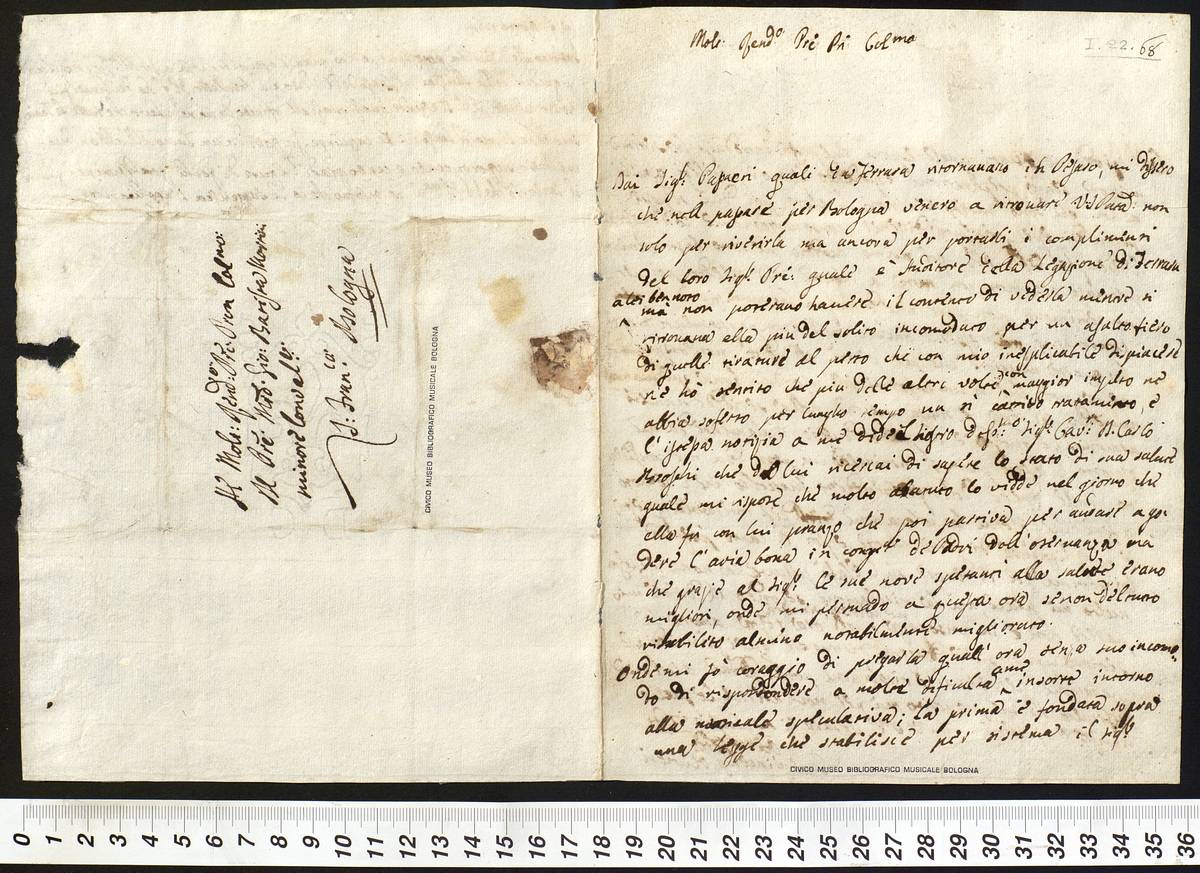 Al Molt: Rend: Pre: Pron Colmo:
Il Pre: Mad: Gio: Battista Martini
minore Convale:
S: Franco: Bologna
CIVICO MUSEO BIBLIOGRAFICO MUSICALE BOLOGNA
Molt: Rendo Pre Pn: Colmo
I.22.68
Dai Sigri quali da Ferrara ritornavano in Pesaro, mi dissero
che nell passare per Bologna venero a ritrovare V:S: non
solo per riverirla ma ancora per portarli i complimenti
del loro Sigr: Pre: quale è Auditore della Legazione di Ferrara
ma non poterano havere il contento di vederla mentre si
ritrovava ella più del solito incomodato per un asalto fiero
di quelle tirature al petto che con mio inesplicabile dispiacere
ne hò sentito che più delle altre volte con maggior impeto ne
abbia soferto per lungho tempo un sì cattivo trataminto, e
l'istessa notizia a me diede il Sigr Cavr: D. Carlo
Broschi che da lui ricercai di sapere lo stato di sua salute
quale mi rispose che molto abatuto lo vidde nel giorno che
ella fu con lui pranzo che poi partiva per andare a go
dere l'aria bona in compa: de Padri dell'oservanza ma
che grazie al Sigr: le sue nove speranti alla salute erano
migliori, onde mi persuado a questa ora se non del tutto
ristabilito almeno notabilmente migliorato.
Onde mi fò coraggio di pregarla quall'ora senza suo incomo
do di rispondere a molte dificultà a me insorte intorno
alla musicale speculativa; la prima è fondata sopra
una legge che stabilisce per sistema il Sigr
CIVICO MUSEO BIBLIOGRAFICO MUSICALE BOLOGNA
0 1 2 3 4 5 6 7 8 9 10 11 12 13 14 15 16 17 18 19 20 21 22 23 24 25 26 27 28 29 30 31 32 33 34 35 36